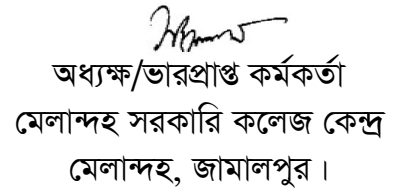 অধ্যক্ষ/ভারপ্রাপ্ত কর্মকর্তা
মেলান্দহ সরকারি কলেজ কেন্দ্র
মেলান্দহ, জামালপুর।